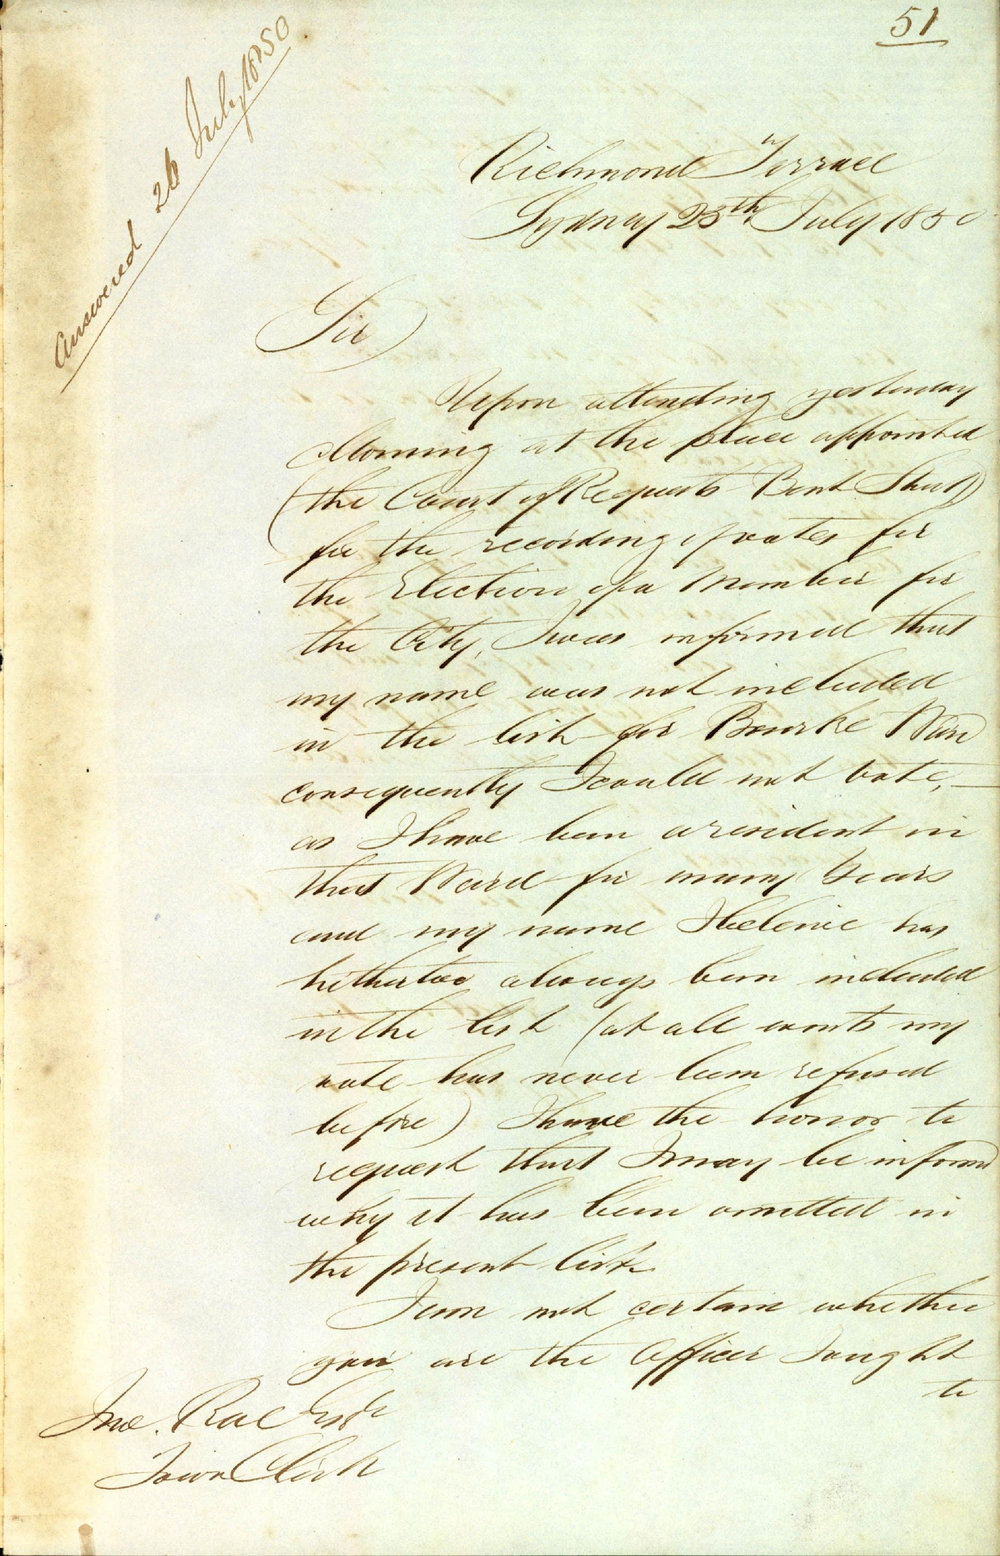 51
Answered 26 July 1850
Richmond Terrace
Sydney 25th July 1850
Sir
Upon attending yesterday
Morning at the place appointed
(the Court of Requests Bent Street)
for the recording of votes for
the Election of a Member for
the City, I was informed that
my name was not included
in the list for Bourke Ward
consequently I could not vote, —
as I have been a resident in
that Ward for many Years
and my name I believe has
hithertoo always been included
in the list (at all events my
vote has never been refused
before) I have the honor to
request that I may be informed
why it has been omitted in
the present list.
I am not certain whether
you are the Officer I ought
to
Jno. Rae Esqr
Town Clerk